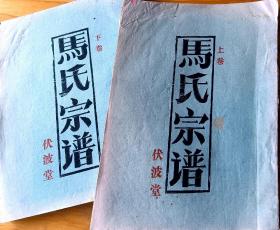 下卷
馬氏宗谱
伏波堂
上卷
馬氏宗谱
伏波堂